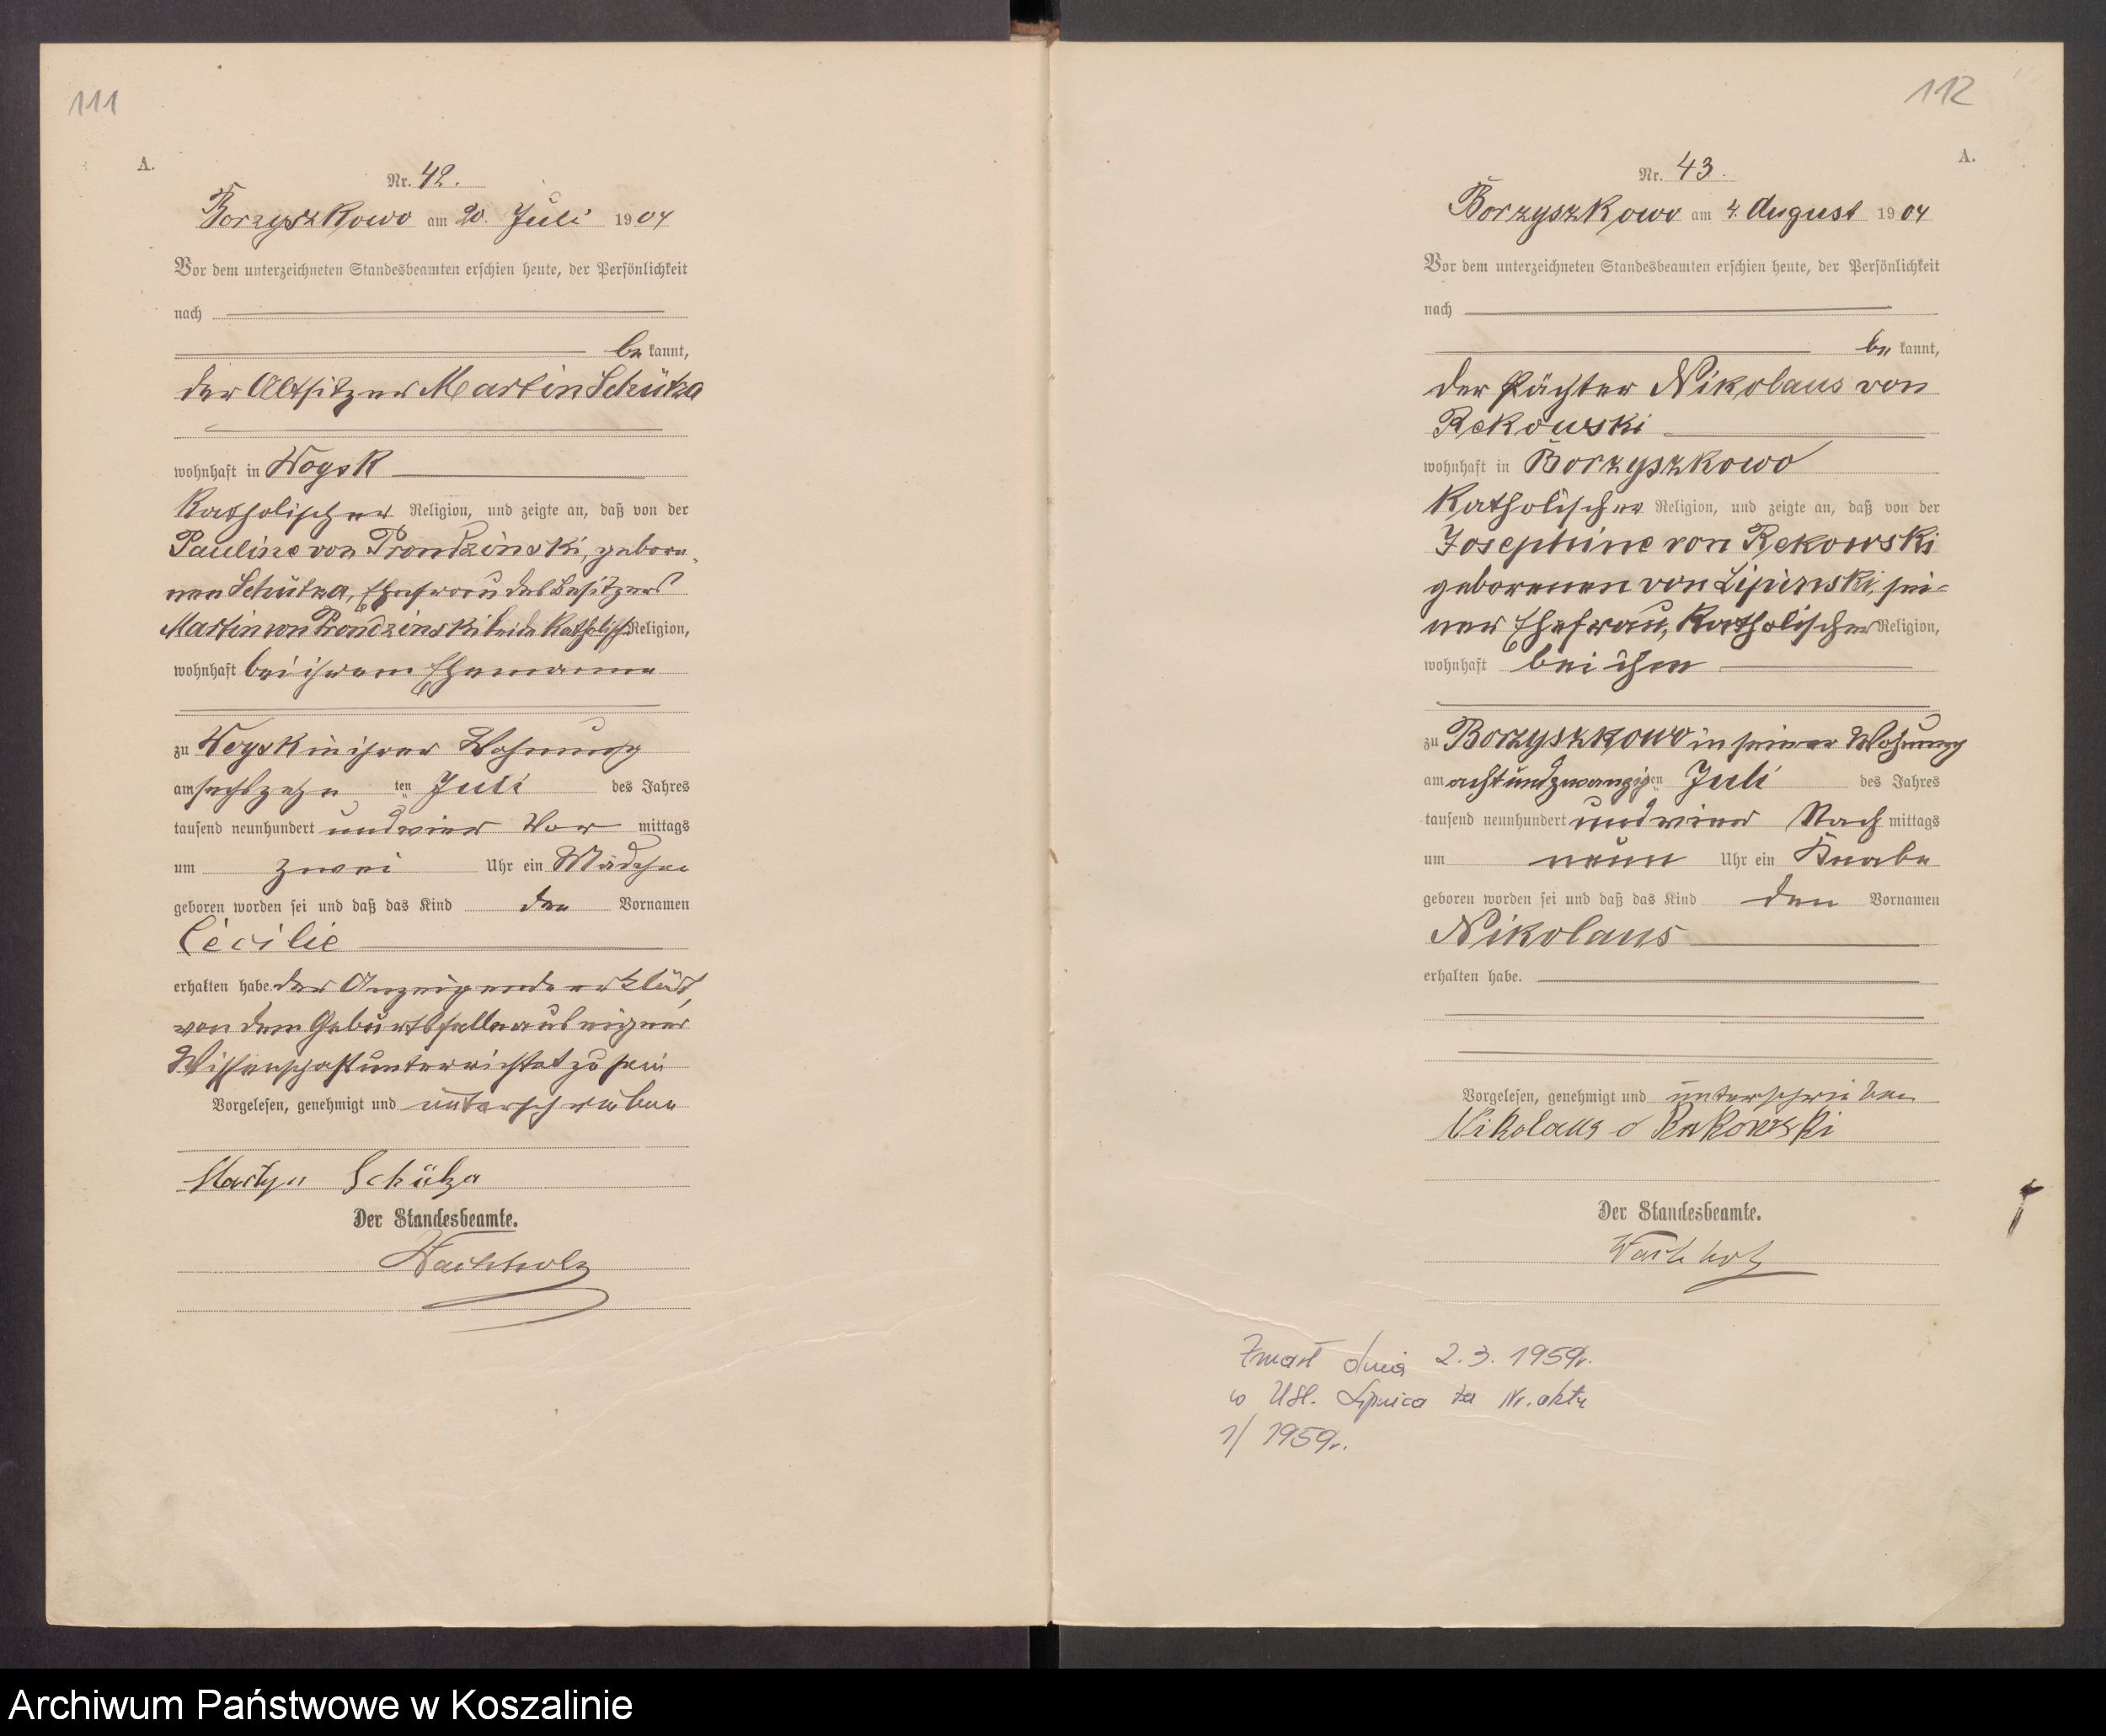 111
A.
Nr. 42.
Borzyszkowo am 20. Juli 1904
Vor dem unterzeichneten Standesbeamten erschien heute, der Persönlichkeit
nach
be kannt,
der Altsitzer Martin Schütza
wohnhaft in Woysk
katholischer Religion, und zeigte an, daß von der
Pauline von Prondzinski, gebore-
nen Schütza, Ehefrau des Besitzers
Martin von Prondzinski beide katholisch Religion,
wohnhaft bei ihrem Ehemanne
zu Woysk in ihrer Wohnung
am sechszehn ten Juli des Jahres
tausend neunhundert und vier Vor mittags
um zwei Uhr ein Mädchen
geboren worden sei und daß das Kind den Vornamen
Cecilie
erhalten habe. der Anzeigende erklärt,
von dem Geburtsfalle aus eigner
Wissenschaft unterrichtet zu sein
Vorgelesen, genehmigt und unterschrieben
Martyn Schütza
Der Standesbeamte.
Wachholz
112
A.
Nr. 43.
Borzyszkowo am 4. August 1904
Vor dem unterzeichneten Standesbeamten erschien heute, der Persönlichkeit
nach
be kannt,
der Pächter Nikolaus von
Rekowski
wohnhaft in Borzyszkowo
katholischer Religion, und zeigte an, daß von der
Josephine von Rekowski
geborenen von Lipinski, sei-
ner Ehefrau, katholischer Religion,
wohnhaft bei ihm
zu Borzyszkowo in seiner Wohnung
am achtundzwanzigten Juli des Jahres
tausend neunhundert und vier Nach mittags
um neun Uhr ein Knabe
geboren worden sei und daß das Kind den Vornamen
Nikolaus
erhalten habe.
Vorgelesen, genehmigt und unterschrieben
Nikolaus v Rekowski
Der Standesbeamte.
Wachholz
Zmarł dnia 2.3.1959r.
w USC. Lipnica Nr. aktu
1/1959r.
Archiwum Państwowe w Koszalinie